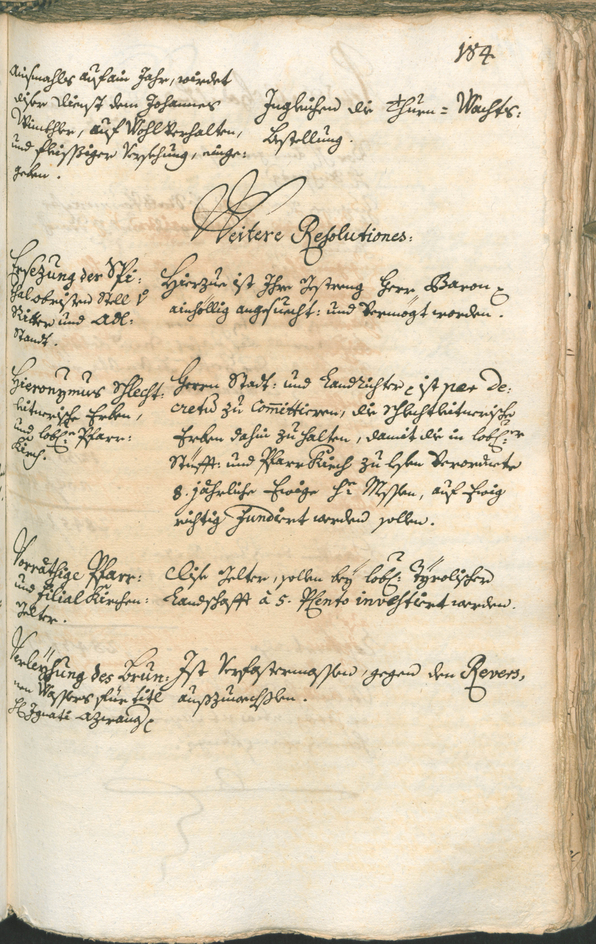 184
Ausmahls auf ain Jahr, würdet
diser Dienst dem Johannes
auf Wohlverhalten,
und fleissiger Versehung, einge-
geben.
Ingleichen die Thurn= Wachts:
Bestellung.
Weitere Resolutiones:
Ersezung der Spi:
talobristen Stell
Ritter und Adl:
Standt.
Hierzue ist Ihro Gestreng Herr Baron
ainhellig angesuecht: und vermögt worden.
Hieronymus Schlecht:
leitnerische Erben,
und lobl: Pfarr:
Kirch.
Herrn Stadt: und Landrichter ist per De:
cretu zu Com̄ittieren, die Schlechtleitnerische
Erben dahin zu halten, damit die in lobl:
Stüfft: und Pfarr Kirch zu lesen verordnete
8. jährliche Ewige H: Messen, auf Ewig
richtig Fundiert werden sollen.
Vorräthige Pfarr:
und Filial Kirchen:
Gelter.
Dise Gelter, sollen bey lobl: Tyrolischer
Landschafft à 5. PCento investiert werden.
Verleichung des Brun:
nen Wassers für Titl
H: Ignati
Ist Verfastermassen, gegen den Revers,
auszuwexlen.